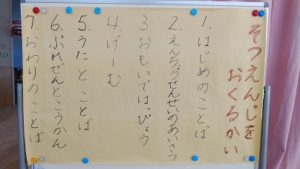 そつえんじを
おくるかい
1.はじめのことば
2.えんちょうせんせいのあいさつ
3.おもいではっぴょう
4.げーむ
5.うたとことば
6.ぷれぜんとこうかん
7.おわりのことば